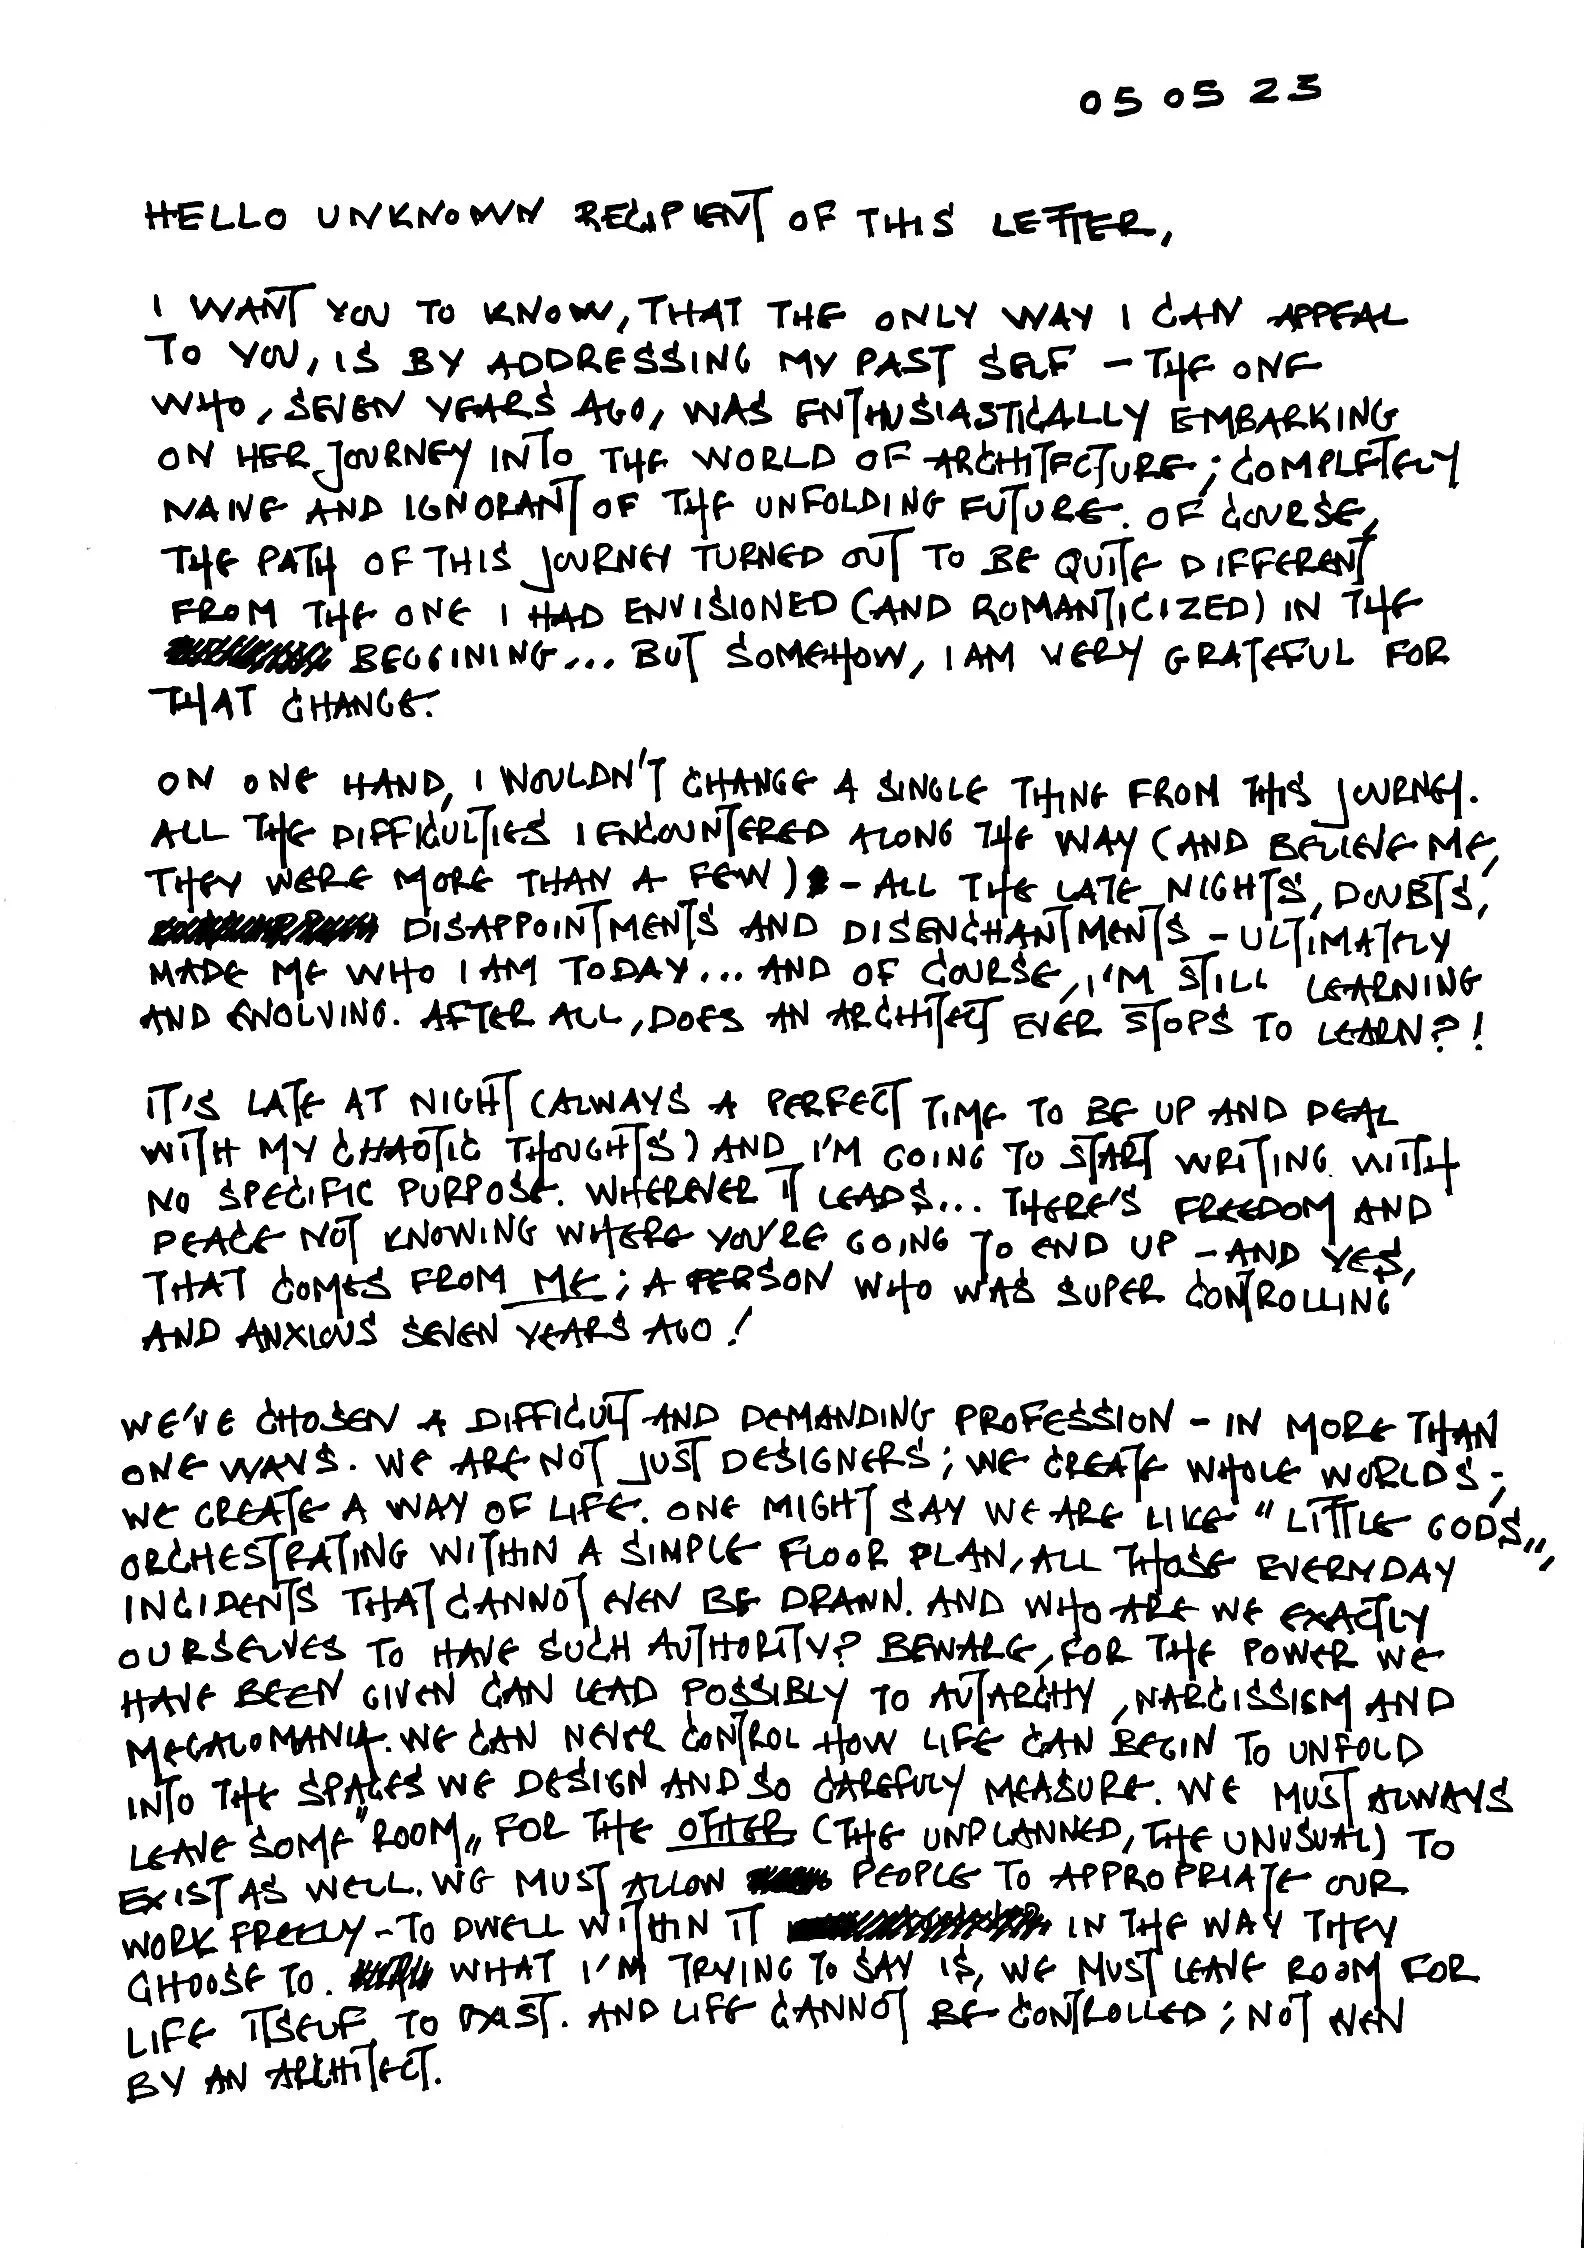 05 05 23
HELLO UNKNOWN RECIPIENT OF THIS LETTER,
I WANT YOU TO KNOW, THAT THE ONLY WAY I CAN APPEAL
TO YOU, IS BY ADDRESSING MY PAST SELF – THE ONE
WHO, SEVEN YEARS AGO, WAS ENTHUSIASTICALLY EMBARKING
ON HER JOURNEY INTO THE WORLD OF ARCHITECTURE; COMPLETELY
NAIVE AND IGNORANT OF THE UNFOLDING FUTURE. OF COURSE,
THE PATH OF THIS JOURNEY TURNED OUT TO BE QUITE DIFFERENT
FROM THE ONE I HAD ENVISIONED (AND ROMANTICIZED) IN THE
BEGGINING... BUT SOMEHOW, I AM VERY GRATEFUL FOR
THAT CHANGE.
ON ONE HAND, I WOULDN'T CHANGE A SINGLE THING FROM THIS JOURNEY.
ALL THE DIFFICULTIES I ENCOUNTERED ALONG THE WAY (AND BELIEVE ME,
THEY WERE MORE THAN A FEW) – ALL THE LATE NIGHTS, DOUBTS,
DISAPPOINTMENTS AND DISENCHANTMENTS – ULTIMATELY
MADE ME WHO I AM TODAY... AND OF COURSE, I'M STILL LEARNING
AND EVOLVING. AFTER ALL, DOES AN ARCHITECT EVER STOPS TO LEARN?!
IT'S LATE AT NIGHT (ALWAYS A PERFECT TIME TO BE UP AND DEAL
WITH MY CHAOTIC THOUGHTS) AND I'M GOING TO START WRITING WITH
NO SPECIFIC PURPOSE. WHEREVER IT LEADS... THERE'S FREEDOM AND
PEACE NOT KNOWING WHERE YOU'RE GOING TO END UP – AND YES,
THAT COMES FROM ME; A PERSON WHO WAS SUPER CONTROLLING
AND ANXIOUS SEVEN YEARS AGO!
WE'VE CHOSEN A DIFFICULT AND DEMANDING PROFESSION – IN MORE THAN
ONE WAYS. WE ARE NOT JUST DESIGNERS; WE CREATE WHOLE WORLDS;
WE CREATE A WAY OF LIFE. ONE MIGHT SAY WE ARE LIKE "LITTLE GODS„,
ORCHESTRATING WITHIN A SIMPLE FLOOR PLAN, ALL THOSE EVERYDAY
INCIDENTS THAT CANNOT EVEN BE DRAWN. AND WHO ARE WE EXACTLY
OURSELVES TO HAVE SUCH AUTHORITY? BEWARE, FOR THE POWER WE
HAVE BEEN GIVEN CAN LEAD POSSIBLY TO AUTARCHY, NARCISSISM AND
MEGALOMANIA. WE CAN NEVER CONTROL HOW LIFE CAN BEGIN TO UNFOLD
INTO THE SPACES WE DESIGN AND SO CAREFULY MEASURE. WE MUST ALWAYS
LEAVE SOME "ROOM„ FOR THE OTHER (THE UNPLANNED, THE UNUSUAL) TO
EXIST AS WELL. WE MUST ALLOW PEOPLE TO APPROPRIATE OUR
WORK FREELY – TO DWELL WITHIN IT IN THE WAY THEY
CHOOSE TO. WHAT I'M TRYING TO SAY IS, WE MUST LEAVE ROOM FOR
LIFE ITSELF TO EXIST. AND LIFE CANNOT BE CONTROLLED; NOT EVEN
BY AN ARCHITECT.